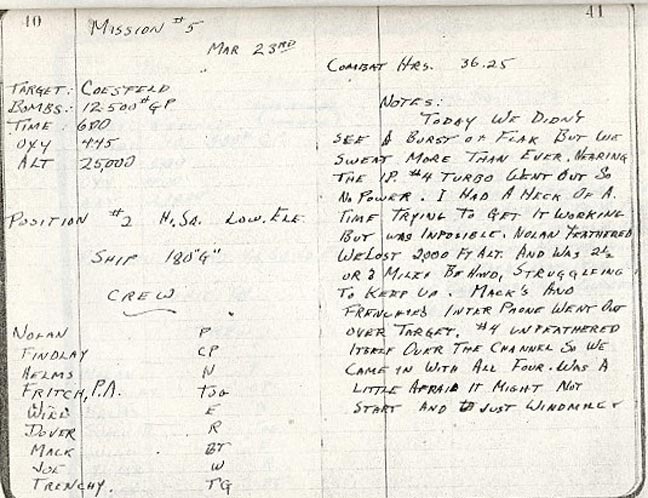 40
MISSION #5
MAR 23RD
TARGET: COESFELD
BOMBS: 12-500# GP
TIME: 600
OXY 445
ALT 25,000
POSITION #2 H. SQ. LOW. ELE.
SHIP 180"G"
CREW
NOLAN P
FINDLAY CP
HELMS N
FRITCH, P.A. TOG
WILD E
DOVER R
MACK BT
JOE W
TRENCHY. TG
41
COMBAT HRS. 36.25
NOTES:
TODAY WE DIDN'T
SEE A BURST OF FLAK BUT WE
SWEAT MORE THAN EVER. NEARING
THE IP. #4 TURBO WENT OUT SO
NO POWER. I HAD A HECK OF A
TIME TRYING TO GET IT WORKING
BUT WAS IMPOSIBLE. NOLAN FEATHERED
WE LOST 2,000 FT ALT. AND WAS 2½
OR 3 MILES BEHIND, STRUGGLEING
TO KEEP UP. MACK'S AND
FRENCHIES INTER PHONE WENT OUT
OVER TARGET. #4 UNFEATHERED
ITSELF OVER THE CHANNEL SO WE
CAME IN WITH ALL FOUR. WAS A
LITTLE AFRAID IT MIGHT NOT
START AND JUST WINDMILL